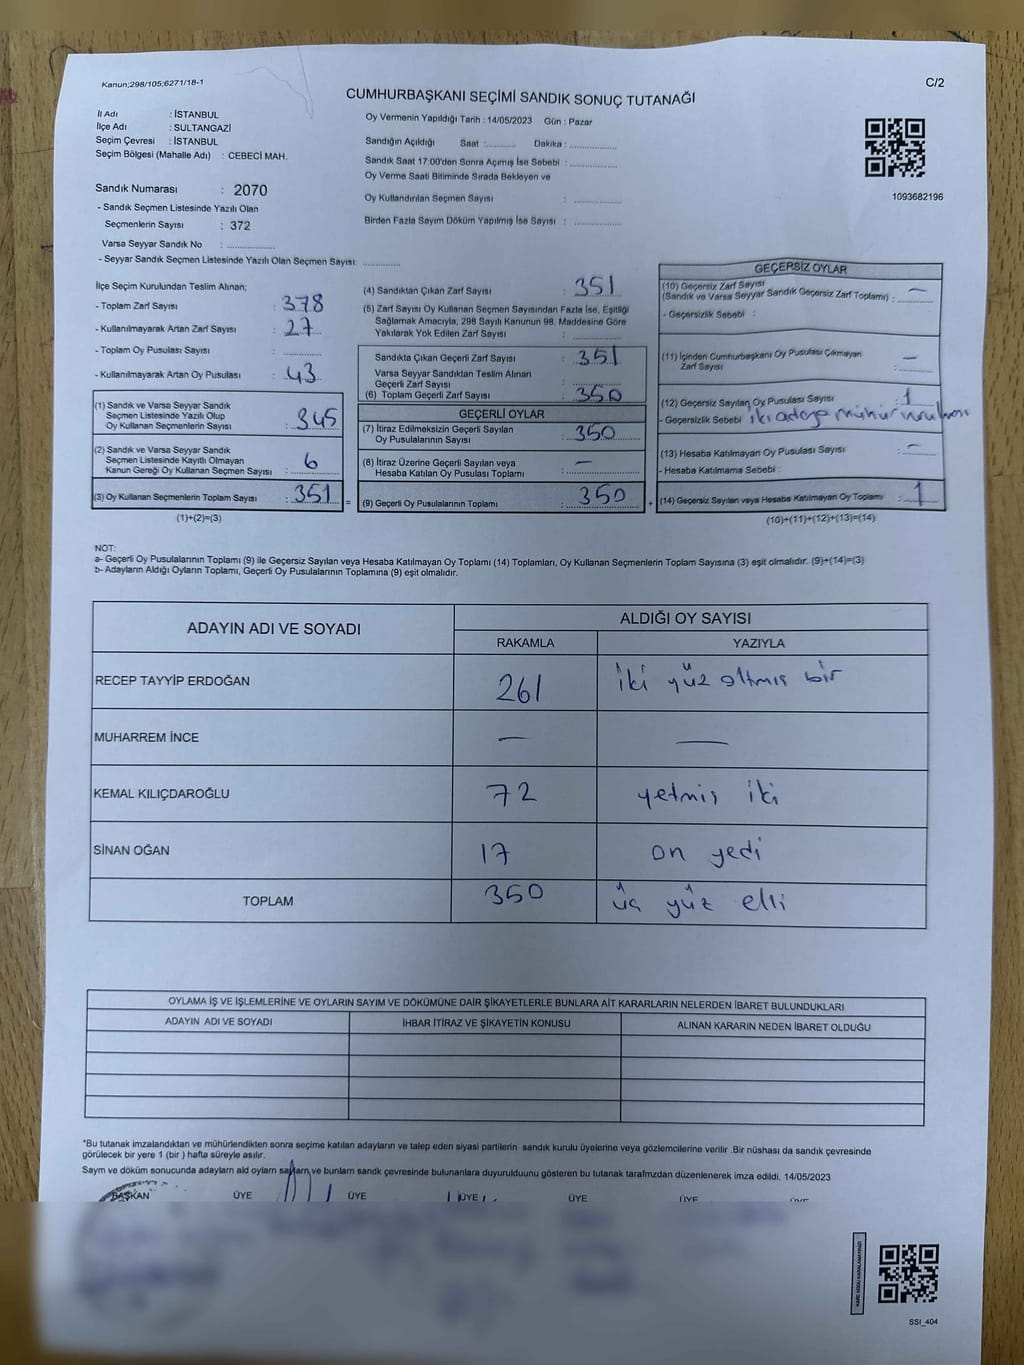 Kanun;298/105;6271/18-1
C/2
CUMHURBAŞKANI SEÇİMİ SANDIK SONUÇ TUTANAĞI
İl Adı : İSTANBUL
İlçe Adı : SULTANGAZİ
Seçim Çevresi : İSTANBUL
Seçim Bölgesi (Mahalle Adı) : CEBECİ MAH.
Sandık Numarası : 2070
- Sandık Seçmen Listesinde Yazılı Olan
Seçmenlerin Sayısı : 372
Varsa Seyyar Sandık No : ..............
- Seyyar Sandık Seçmen Listesinde Yazılı Olan Seçmen Sayısı: ............
Oy Vermenin Yapıldığı Tarih : 14/05/2023 Gün : Pazar
Sandığın Açıldığı Saat :.......... Dakika : ..............
Sandık Saat 17:00'den Sonra Açımış İse Sebebi : ..............
Oy Verme Saati Bitiminde Sırada Bekleyen ve
Oy Kullandırılan Seçmen Sayısı : ..............
Birden Fazla Sayım Döküm Yapılmış İse Sayısı : ..............
1093682196
İlçe Seçim Kurulundan Teslim Alınan;
- Toplam Zarf Sayısı : 378
- Kullanılmayarak Artan Zarf Sayısı : 27
- Toplam Oy Pusulası Sayısı : ............
- Kullanılmayarak Artan Oy Pusulası : 43
(1) Sandık ve Varsa Seyyar Sandık
Seçmen Listesinde Yazılı Olup
Oy Kullanan Seçmenlerin Sayısı : 345
(2) Sandık ve Varsa Seyyar Sandık
Seçmen Listesinde Kayıtlı Olmayan
Kanun Gereği Oy Kullanan Seçmen Sayısı : 6
(3) Oy Kullanan Seçmenlerin Toplam Sayısı : 351 =
(1)+(2)=(3)
(4) Sandıktan Çıkan Zarf Sayısı : 351
(5) Zarf Sayısı Oy Kullanan Seçmen Sayısından Fazla İse, Eşitliği
Sağlamak Amacıyla; 298 Sayılı Kanunun 98. Maddesine Göre
Yakılarak Yok Edilen Zarf Sayısı : ..............
Sandıkta Çıkan Geçerli Zarf Sayısı : 351
Varsa Seyyar Sandıktan Teslim Alınan
Geçerli Zarf Sayısı : ..............
(6) Toplam Geçerli Zarf Sayısı : 350
GEÇERLİ OYLAR
(7) İtiraz Edilmeksizin Geçerli Sayılan
Oy Pusulalarının Sayısı : 350
(8) İtiraz Üzerine Geçerli Sayılan veya
Hesaba Katılan Oy Pusulası Toplamı : —
(9) Geçerli Oy Pusulalarının Toplamı : 350 +
GEÇERSİZ OYLAR
(10) Geçersiz Zarf Sayısı
(Sandık ve Varsa Seyyar Sandık Geçersiz Zarf Toplamı) : —
- Geçersizlik Sebebi :
(11) İçinden Cumhurbaşkanı Oy Pusulası Çıkmayan
Zarf Sayısı : —
(12) Geçersiz Sayılan Oy Pusulası Sayısı : 1
- Geçersizlik Sebebi : iki adaya mühür vurulması
(13) Hesaba Katılmayan Oy Pusulası Sayısı : —
- Hesaba Katılmama Sebebi :
(14) Geçersiz Sayılan veya Hesaba Katılmayan Oy Toplamı : 1
(10)+(11)+(12)+(13)=(14)
NOT:
a- Geçerli Oy Pusulalarının Toplamı (9) ile Geçersiz Sayılan veya Hesaba Katılmayan Oy Toplamı (14) Toplamları, Oy Kullanan Seçmenlerin Toplam Sayısına (3) eşit olmalıdır. (9)+(14)=(3)
b- Adayların Aldığı Oyların Toplamı, Geçerli Oy Pusulalarının Toplamına (9) eşit olmalıdır.
ADAYIN ADI VE SOYADI
ALDIĞI OY SAYISI
RAKAMLA YAZIYLA
RECEP TAYYİP ERDOĞAN 261 iki yüz altmış bir
MUHARREM İNCE — —
KEMAL KILIÇDAROĞLU 72 yetmiş iki
SİNAN OĞAN 17 on yedi
TOPLAM 350 üç yüz elli
OYLAMA İŞ VE İŞLEMLERİNE VE OYLARIN SAYIM VE DÖKÜMÜNE DAİR ŞİKAYETLERLE BUNLARA AİT KARARLARIN NELERDEN İBARET BULUNDUKLARI
ADAYIN ADI VE SOYADI İHBAR İTİRAZ VE ŞİKAYETİN KONUSU ALINAN KARARIN NEDEN İBARET OLDUĞU
*Bu tutanak imzalandıktan ve mühürlendikten sonra seçime katılan adayların ve talep eden siyasi partilerin sandık kurulu üyelerine veya gözlemcilerine verilir .Bir nüshası da sandık çevresinde
görülecek bir yere 1 (bir ) hafta süreyle asılır.
Sayım ve döküm sonucunda adayların ald oyların sayların ve bunların sandık çevresinde bulunanlara duyurulduunu gösteren bu tutanak tarafmzdan düzenlenerek imza edildi. 14/05/2023
BAŞKAN ÜYE ÜYE ÜYE ÜYE ÜYE ÜYE
SSI_404